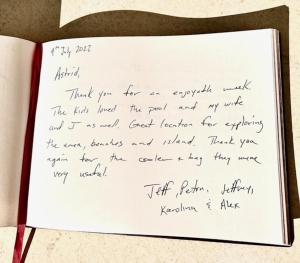 9th July 2022
Astrid,
Thank you for an enjoyable week
The kids loved the pool and my wife
and I as well. Great location for exploring
the area, beaches and island. Thank you
again for the cooler + bag they were
very useful.
Jeff, Petra, Jeffrey,
Karolina & Alex